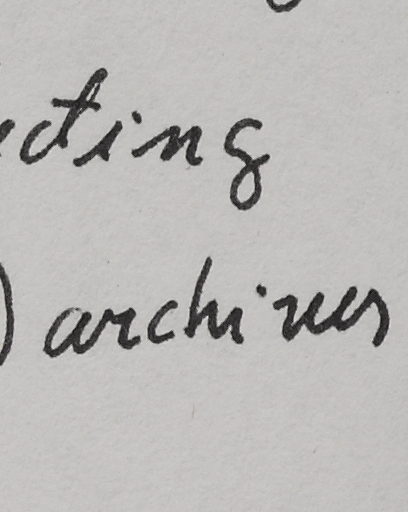 cting
) archives